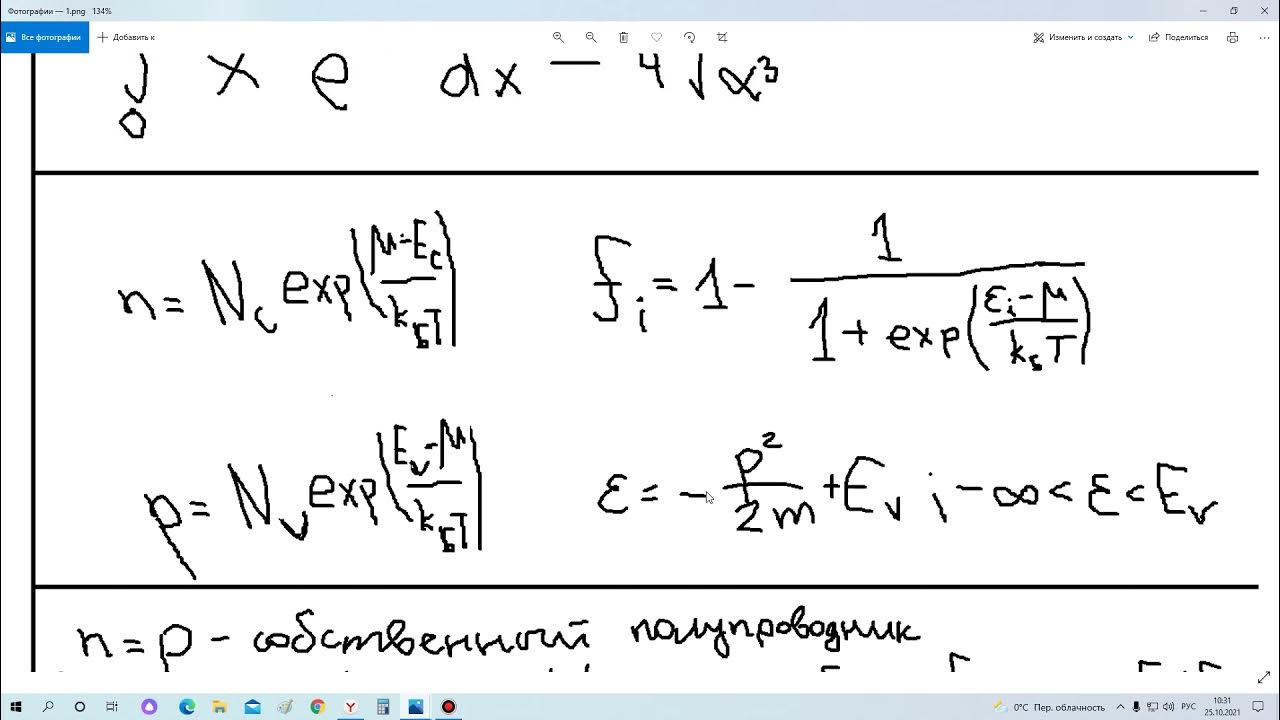 Фотографии — 1.png 134%
Все фотографии Добавить к Изменить и создать Поделиться
0 x e dx — 4 √α³
n = N_c exp((μ - E_c)/(k_Б T)) f_i = 1 - 1/(1 + exp((ε_i - μ)/(k_Б T)))
p = N_v exp((E_v - μ)/(k_Б T)) ε = - p²/2m + E_v ; -∞ < ε < E_v
n = p - собственный полупроводник
0°C Пер. облачность РУС 10:31
25.10.2021